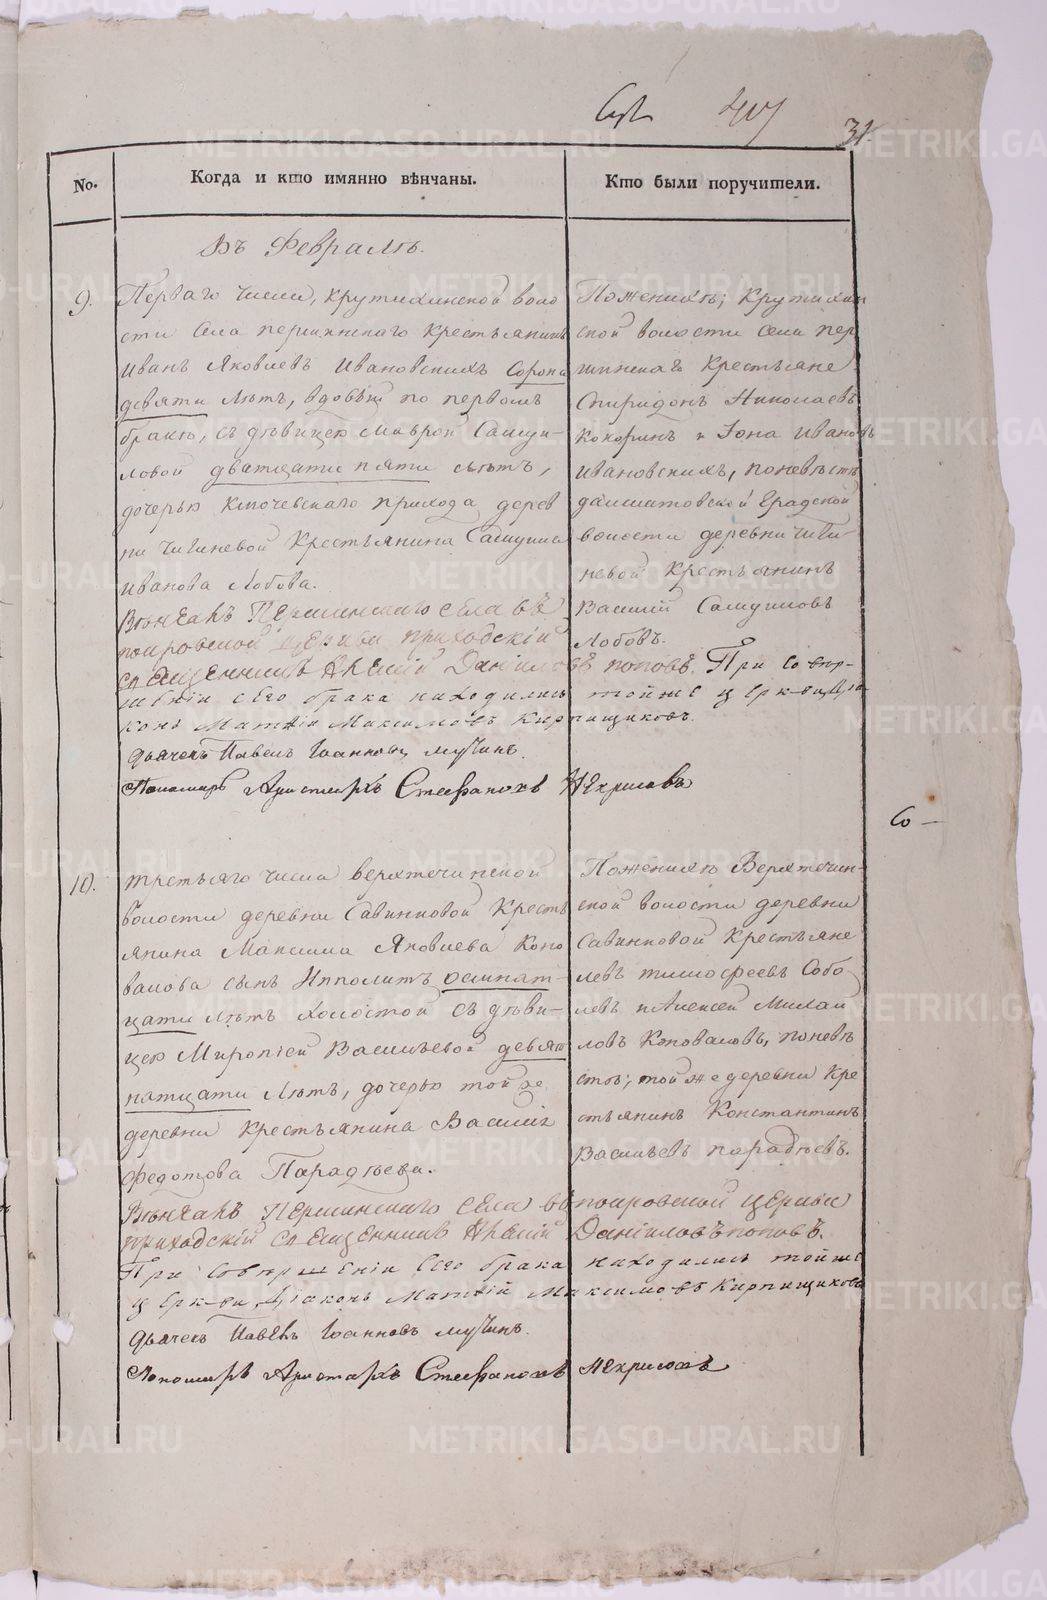 407
31.
No.
Когда и кто имянно вѣнчаны.
Кто были поручители.
Въ Февралѣ.
9.
Перваго числа, крутихинской воло
сти села першинскаго крестьянинъ
Иванъ Яковлевъ Ивановскихъ сорока
девяти лѣтъ, вдовый по первомъ
бракѣ, съ дѣвицею Маврой Самуи-
ловой дватцати пяти лѣтъ,
дочерью ключевскаго прихода дерев
ни чигиневой крестьянина Самуила
Иванова Лобова.
Вѣнчалъ Першинскаго села въ
покровской церкви приходскій
священникъ Данïиловъ поповъ. При совер-
шеніи сего брака находились тойже церкви дïа-
конъ Матѳій Максимовъ Кирпищиковъ.
дьячекъ Павелъ Іоанновъ мутинъ.
Пономарь Аристархъ Стефановъ Некрасовъ
Поженихѣ; Крутихин
ской волости села пер
шинскаго крестьяне
Спиридонъ Николаевъ
Кокоринъ и Iона Ивановъ
Ивановскихъ, поневѣстѣ
далматовской градской
волости деревни чиги-
невой крестьянинъ
Василий Самуиловъ
Лобовъ.
Со —
10.
третьяго числа верхтечинской
волости деревни Савинковой кресть
янина Максима Яковлева Коно
валова сынъ Ипполитъ осмнат-
цати лѣтъ холостой съ дѣви-
цею Миропіей Васильевой девят
натцати лѣтъ, дочерью той же
деревни крестьянина Василия
Федотова Парадѣева.
Вѣнчалъ Першинскаго села въ покровской церкви
приходскій священникъ Данïиловъ поповъ.
При совершеніи сего брака находились тойже
церкви дïаконъ Матѳій Максимовъ Кирпищиковъ
дьячекъ Павелъ Іоанновъ мутинъ.
Пономарь Аристархъ Стефановъ Некрасовъ
Поженихѣ Верхтечин-
ской волости деревни
Савинковой крестьяне
Левъ тимофеевъ Собо
левъ и Алексей Михай
ловъ Коноваловъ, поневѣ
стѣ; той же деревни кре
стьянинъ Константинъ
Васильевъ парадѣевъ.
METRIKI.GASO-URAL.RU